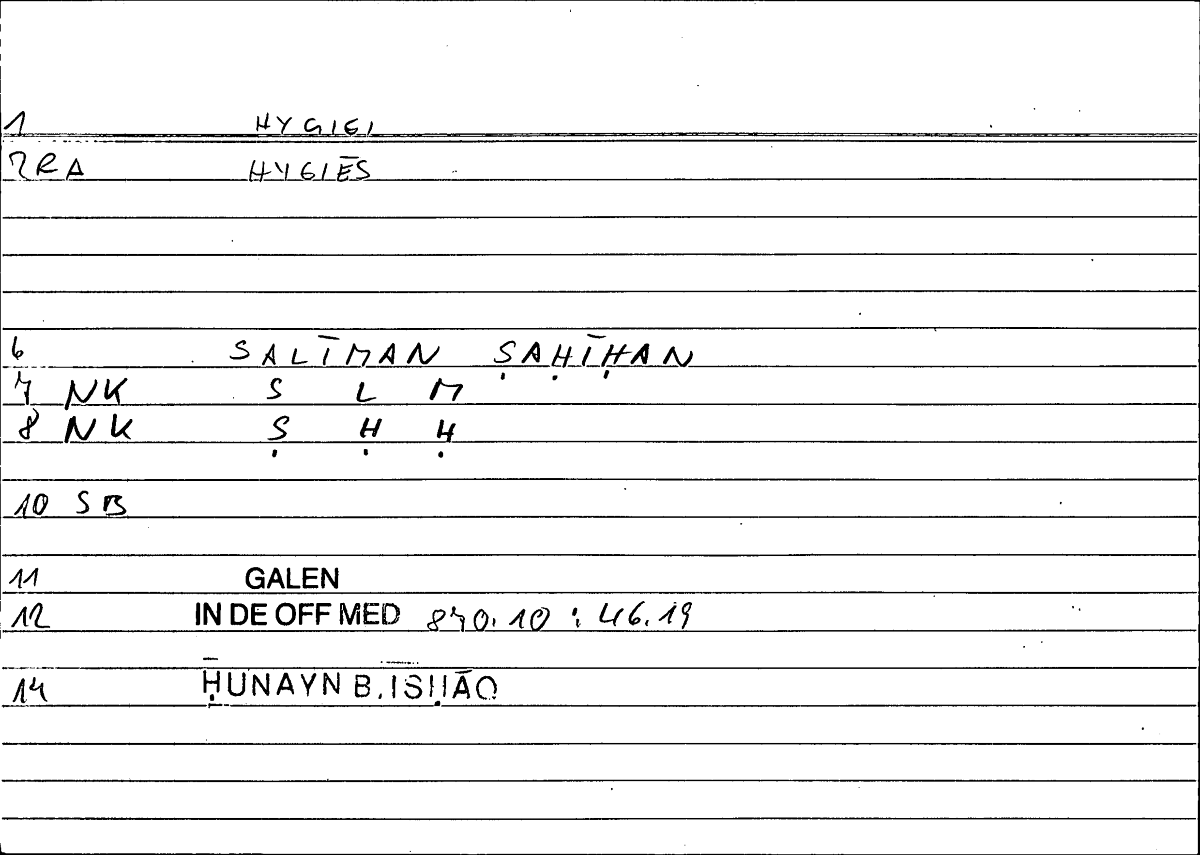 1 HYGIEI
2RA HYGIĒS
6 SALĪMAN ṢAḤĪḤAN
7 NK S L M
8 NK Ṣ Ḥ Ḥ
10 SB
11 GALEN
12 IN DE OFF MED 870.10 : 46.19
14 ḤUNAYN B. ISḤĀQ